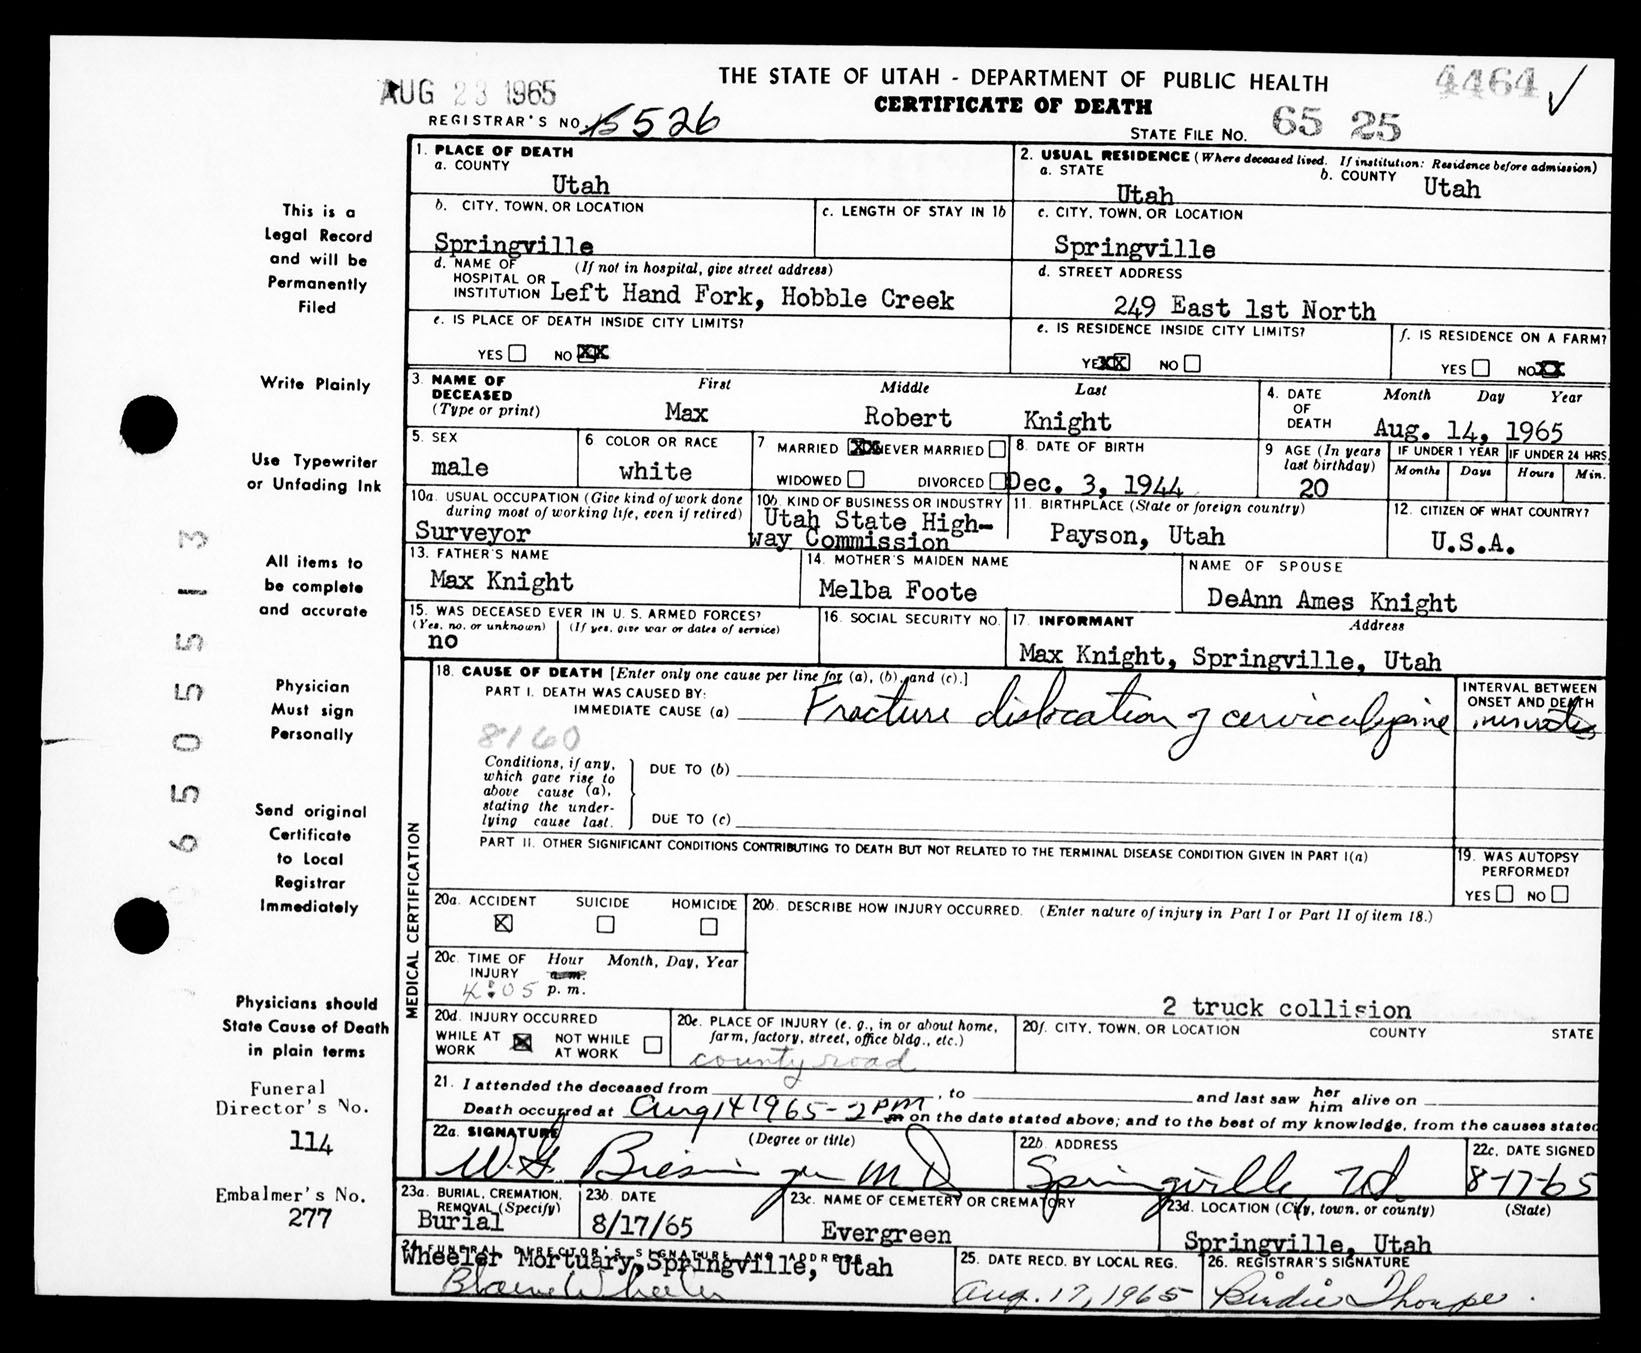 THE STATE OF UTAH - DEPARTMENT OF PUBLIC HEALTH
CERTIFICATE OF DEATH
4464 ✓
AUG 23 1965
REGISTRAR'S NO. 526
STATE FILE NO. 65 25
This is a
Legal Record
and will be
Permanently
Filed
Write Plainly
Use Typewriter
or Unfading Ink
All items to
be complete
and accurate
Physician
Must sign
Personally
Send original
Certificate
to Local
Registrar
Immediately
Physicians should
State Cause of Death
in plain terms
Funeral
Director's No.
114
Embalmer's No.
277
6505513
1. PLACE OF DEATH
a. COUNTY
Utah
2. USUAL RESIDENCE (Where deceased lived. If institution: Residence before admission)
a. STATE
Utah
b. COUNTY Utah
b. CITY, TOWN, OR LOCATION
Springville
c. LENGTH OF STAY IN 1b
c. CITY, TOWN, OR LOCATION
Springville
d. NAME OF (If not in hospital, give street address)
HOSPITAL OR
INSTITUTION Left Hand Fork, Hobble Creek
d. STREET ADDRESS
249 East 1st North
e. IS PLACE OF DEATH INSIDE CITY LIMITS?
YES NO XX
e. IS RESIDENCE INSIDE CITY LIMITS?
YES XX NO
f. IS RESIDENCE ON A FARM?
YES NO XX
3. NAME OF
DECEASED
(Type or print)
First Middle Last
Max Robert Knight
4. DATE
OF
DEATH
Month Day Year
Aug. 14, 1965
5. SEX
male
6 COLOR OR RACE
white
7 MARRIED XX NEVER MARRIED
WIDOWED DIVORCED
8. DATE OF BIRTH
Dec. 3, 1944
9 AGE (In years
last birthday)
20
IF UNDER 1 YEAR
Months Days
IF UNDER 24 HRS.
Hours Min.
10a. USUAL OCCUPATION (Give kind of work done
during most of working life, even if retired)
Surveyor
10b. KIND OF BUSINESS OR INDUSTRY
Utah State High-
way Commission
11. BIRTHPLACE (State or foreign country)
Payson, Utah
12. CITIZEN OF WHAT COUNTRY?
U.S.A.
13. FATHER'S NAME
Max Knight
14. MOTHER'S MAIDEN NAME
Melba Foote
NAME OF SPOUSE
DeAnn Ames Knight
15. WAS DECEASED EVER IN U. S. ARMED FORCES?
(Yes, no, or unknown) (If yes, give war or dates of service)
no
16. SOCIAL SECURITY NO.
17. INFORMANT Address
Max Knight, Springville, Utah
MEDICAL CERTIFICATION
18. CAUSE OF DEATH [Enter only one cause per line for (a), (b), and (c).]
PART I. DEATH WAS CAUSED BY:
IMMEDIATE CAUSE (a) Fracture dislocation of cervical spine
INTERVAL BETWEEN
ONSET AND DEATH
minutes
8160
Conditions, if any,
which gave rise to
above cause (a),
stating the under-
lying cause last.
DUE TO (b)
DUE TO (c)
PART II. OTHER SIGNIFICANT CONDITIONS CONTRIBUTING TO DEATH BUT NOT RELATED TO THE TERMINAL DISEASE CONDITION GIVEN IN PART I(a)
19. WAS AUTOPSY
PERFORMED?
YES NO
20a. ACCIDENT SUICIDE HOMICIDE
X
20b. DESCRIBE HOW INJURY OCCURRED. (Enter nature of injury in Part I or Part II of item 18.)
2 truck collision
20c. TIME OF Hour Month, Day, Year
INJURY a.m.
4:05 p. m.
20d. INJURY OCCURRED
WHILE AT X NOT WHILE
WORK AT WORK
20e. PLACE OF INJURY (e. g., in or about home,
farm, factory, street, office bldg., etc.)
county road
20f. CITY, TOWN, OR LOCATION COUNTY STATE
21. I attended the deceased from , to and last saw her him alive on
Death occurred at Aug 14 1965 - 2 PM m on the date stated above; and to the best of my knowledge, from the causes stated
22a. SIGNATURE (Degree or title)
W. G. M D
22b. ADDRESS
Springville Ut.
22c. DATE SIGNED
8-17-65
23a. BURIAL, CREMATION,
REMOVAL (Specify)
Burial
23b. DATE
8/17/65
23c. NAME OF CEMETERY OR CREMATORY
Evergreen
23d. LOCATION (City, town, or county) (State)
Springville, Utah
24. FUNERAL DIRECTOR'S SIGNATURE AND ADDRESS
Wheeler Mortuary, Springville, Utah
Blaine Wheeler
25. DATE RECD. BY LOCAL REG.
Aug. 17, 1965
26. REGISTRAR'S SIGNATURE
Birdie Thorpe.